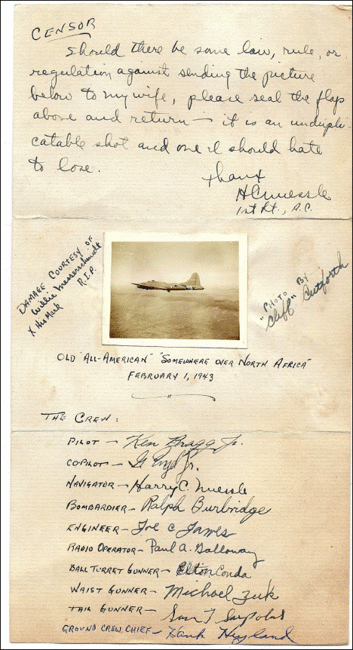 CENSOR
Should there be some law, rule, or
regulation against sending the picture
below to my wife, please seal the flap
above and return — it is an undupli-
catable shot and one I should hate
to lose.
Thanx
HCNuessle
1st Lt., A.C.
DAMAGE COURTESY OF
Willie Messerschmidt
R.I.P.
X His Mark
"PHOTO BY
Cliff Cutforth
OLD "ALL-AMERICAN" "SOMEWHERE OVER NORTH AFRICA"
FEBRUARY 1, 1943
THE CREW:
PILOT — Ken Bragg Jr.
COPILOT — G Boyd Jr.
NAVIGATOR — Harry C. Nuessle
BOMBARDIER — Ralph Burbridge
ENGINEER — Joe C James
RADIO OPERATOR — Paul A. Galloway
BALL TURRET GUNNER — Elton Conda
WAIST GUNNER — Michael Zuk
TAIL GUNNER — Sam T Sarpolus
GROUND CREW CHIEF — Hank Hyland